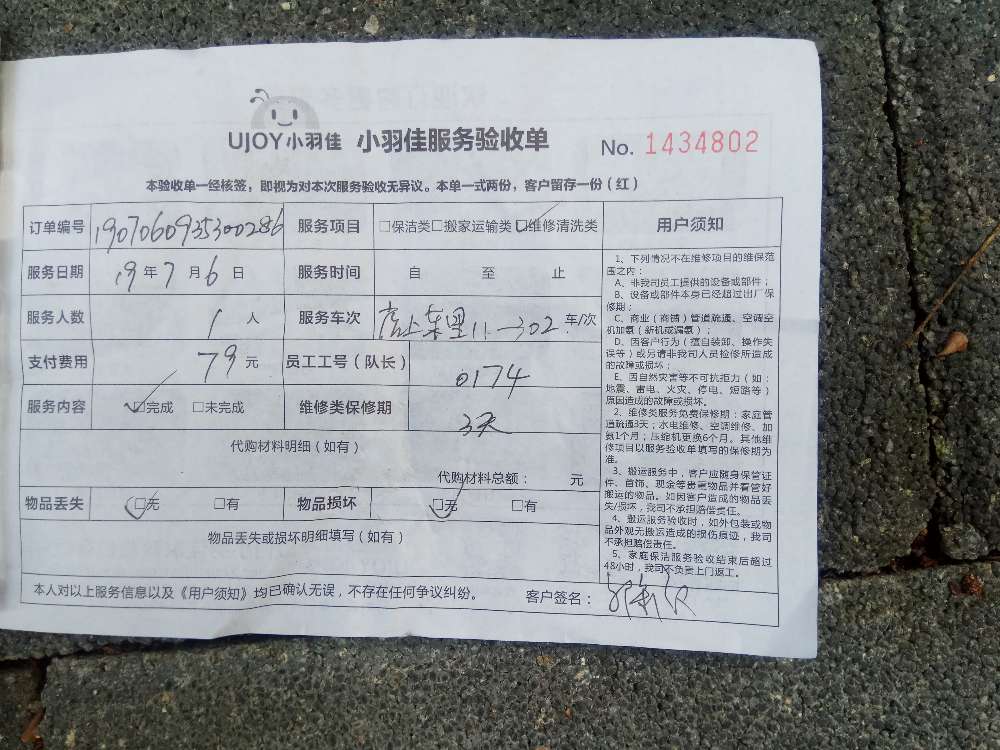 UJOY小羽佳 小羽佳服务验收单 No. 1434802
本验收单一经核签，即视为对本次服务验收无异议。本单一式两份，客户留存一份（红）
订单编号 1907060935300286 服务项目 □保洁类□搬家运输类☑维修清洗类
服务日期 19年7月6日 服务时间 自 至 止
服务人数 1 人 服务车次 11-302 车/次
支付费用 79元 员工工号（队长） 0174
服务内容 ☑完成 □未完成 维修类保修期 3天
代购材料明细（如有）
代购材料总额： 元
物品丢失 ☑无 □有 物品损坏 ☑无 □有
物品丢失或损坏明细填写（如有）
用户须知
1、下列情况不在维修项目的维保范
围之内：
A、非我司员工提供的设备或部件；
B、设备或部件本身已经超过出厂保
修期；
C、商业（商铺）管道疏通、空调空
机加氨（新机或漏氨）；
D、因客户行为（擅自装卸、操作失
误等）或另请非我司人员检修所造成
的故障或损坏；
E、因自然灾害等不可抗拒力（如：
地震、雷电、火灾、停电、短路等）
原因造成的故障或损坏。
2、维修类服务免费保修期：家庭管
道疏通3天；水电维修、空调维修、加
氨1个月；压缩机更换6个月。其他维
修项目以服务验收单填写的保修期为
准。
3、搬运服务中，客户应随身保管证
件、首饰、现金等贵重物品并看管好
搬运的物品。如因客户造成的物品丢
失/损坏，我司不承担赔偿责任。
4、搬运服务验收时，如外包装或物
品外观无搬运造成的损伤痕迹，我司
不承担赔偿责任。
5、家庭保洁服务验收结束后超过
48小时，我司不负责上门返工。
本人对以上服务信息以及《用户须知》均已确认无误，不存在任何争议纠纷。 客户签名：